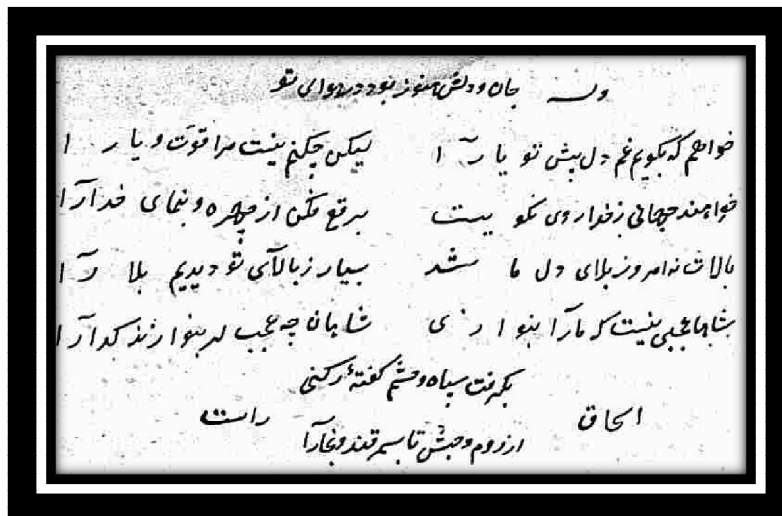 وله جان و دلش هنوز بود در هوای تو
خواهم که بگویم غم دل پیش تو یارآ ا لیکن چکنم نیست مرا قوت و یار ا
خواهند جهانی ز خدا روی نکو یت برقع فکن از چهره و بنمای خدا را
بالات نه امروز بلای دل ما شد بسیار ز بالای تو دیدیم بلا لا آ
شاها عجبی نیست که ما را بنوا ز ی شاهان چه عجب گر بنوازند گدا را
بگرفت سپاه و حشم گفتهٔ رکنی
الحاق راست
از روم و حبش تا سمرقند و بخارا